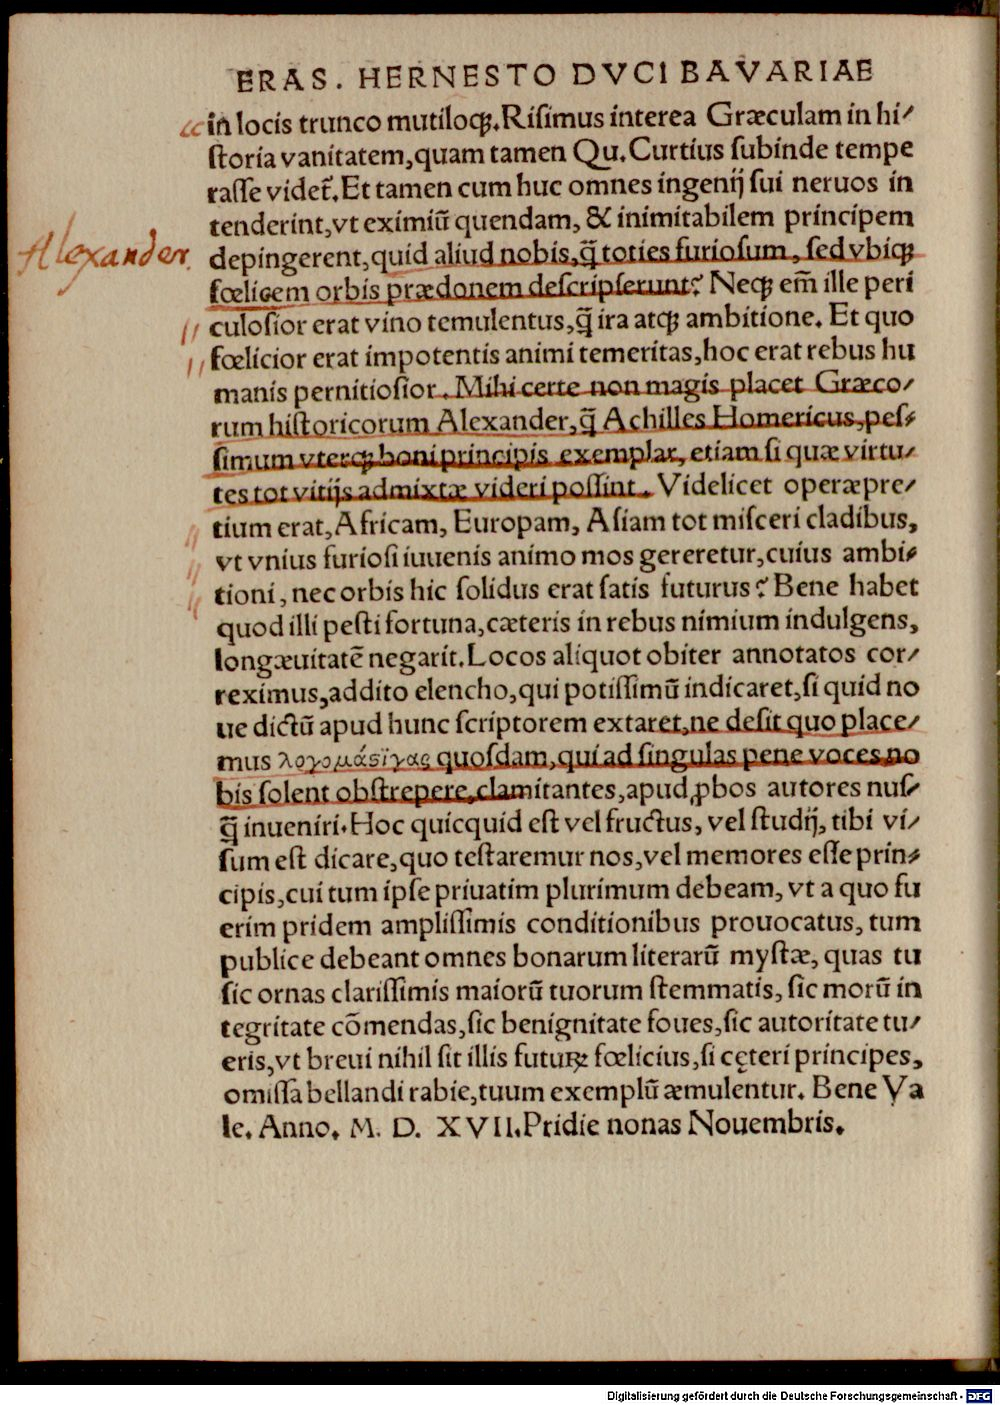 ERAS. HERNESTO DVCI BAVARIAE
in locis trunco mutiloqꝫ. Risimus interea Græculam in hi/
storia vanitatem, quam tamen Qu. Curtius subinde tempe
rasse videt᷑. Et tamen cum huc omnes ingenij sui neruos in
tenderint, vt eximiũ quendam, & inimitabilem principem
Alexander.
depingerent, quid aliud nobis, q̃ toties furiosum, sed vbiqꝫ
fœlicem orbis prædonem descripserunt? Neqꝫ em̃ ille peri
culosior erat vino temulentus, q̃ ira atqꝫ ambitione. Et quo
fœlicior erat impotentis animi temeritas, hoc erat rebus hu
manis pernitiosior. Mihi certe non magis placet Græco/
rum historicorum Alexander, q̃ Achilles Homericus, pes/
simum vterqꝫ boni principis exemplar, etiam si quæ virtu/
tes tot vitijs admixtæ videri possint. Videlicet operæpre/
tium erat, Africam, Europam, Asiam tot misceri cladibus,
vt vnius furiosi iuuenis animo mos gereretur, cuius ambi/
tioni, nec orbis hic solidus erat satis futurus? Bene habet
quod illi pesti fortuna, cæteris in rebus nimium indulgens,
longæuitatẽ negarit. Locos aliquot obiter annotatos cor/
reximus, addito elencho, qui potissimũ indicaret, si quid no
ue dictũ apud hunc scriptorem extaret, ne desit quo place/
mus λογομάϛιγας quosdam, qui ad singulas pene voces no
bis solent obstrepere, clamitantes, apud ꝓbos autores nus/
q̃ inueniri. Hoc quicquid est vel fructus, vel studij, tibi vi/
sum est dicare, quo testaremur nos, vel memores esse prin/
cipis, cui tum ipse priuatim plurimum debeam, vt a quo fu
erim pridem amplissimis conditionibus prouocatus, tum
publice debeant omnes bonarum literarũ mystæ, quas tu
sic ornas clarissimis maiorũ tuorum stemmatis, sic morũ in
tegritate cõmendas, sic benignitate foues, sic autoritate tu/
eris, vt breui nihil sit illis futuꝝ fœlicius, si cęteri principes,
omissa bellandi rabie, tuum exemplũ æmulentur. Bene Va
le. Anno. M. D. XVII. Pridie nonas Nouembris.
Digitalisierung gefördert durch die Deutsche Forschungsgemeinschaft - DFG